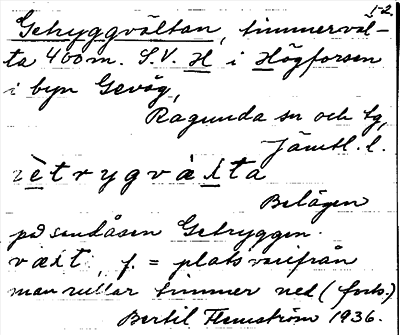 1-2.
Getryggvältan, timmerväl-
ta 400 m. S.V. H i Högforsen
i byn Gevåg,
Ragunda sn och tg,
Jämtl. l.
ètrygvàlta
Belägen
på sandåsen Getryggen.
vælt, f. = plats varifrån
man rullar timmer ned (forts.)
Bertil Flemström 1936.